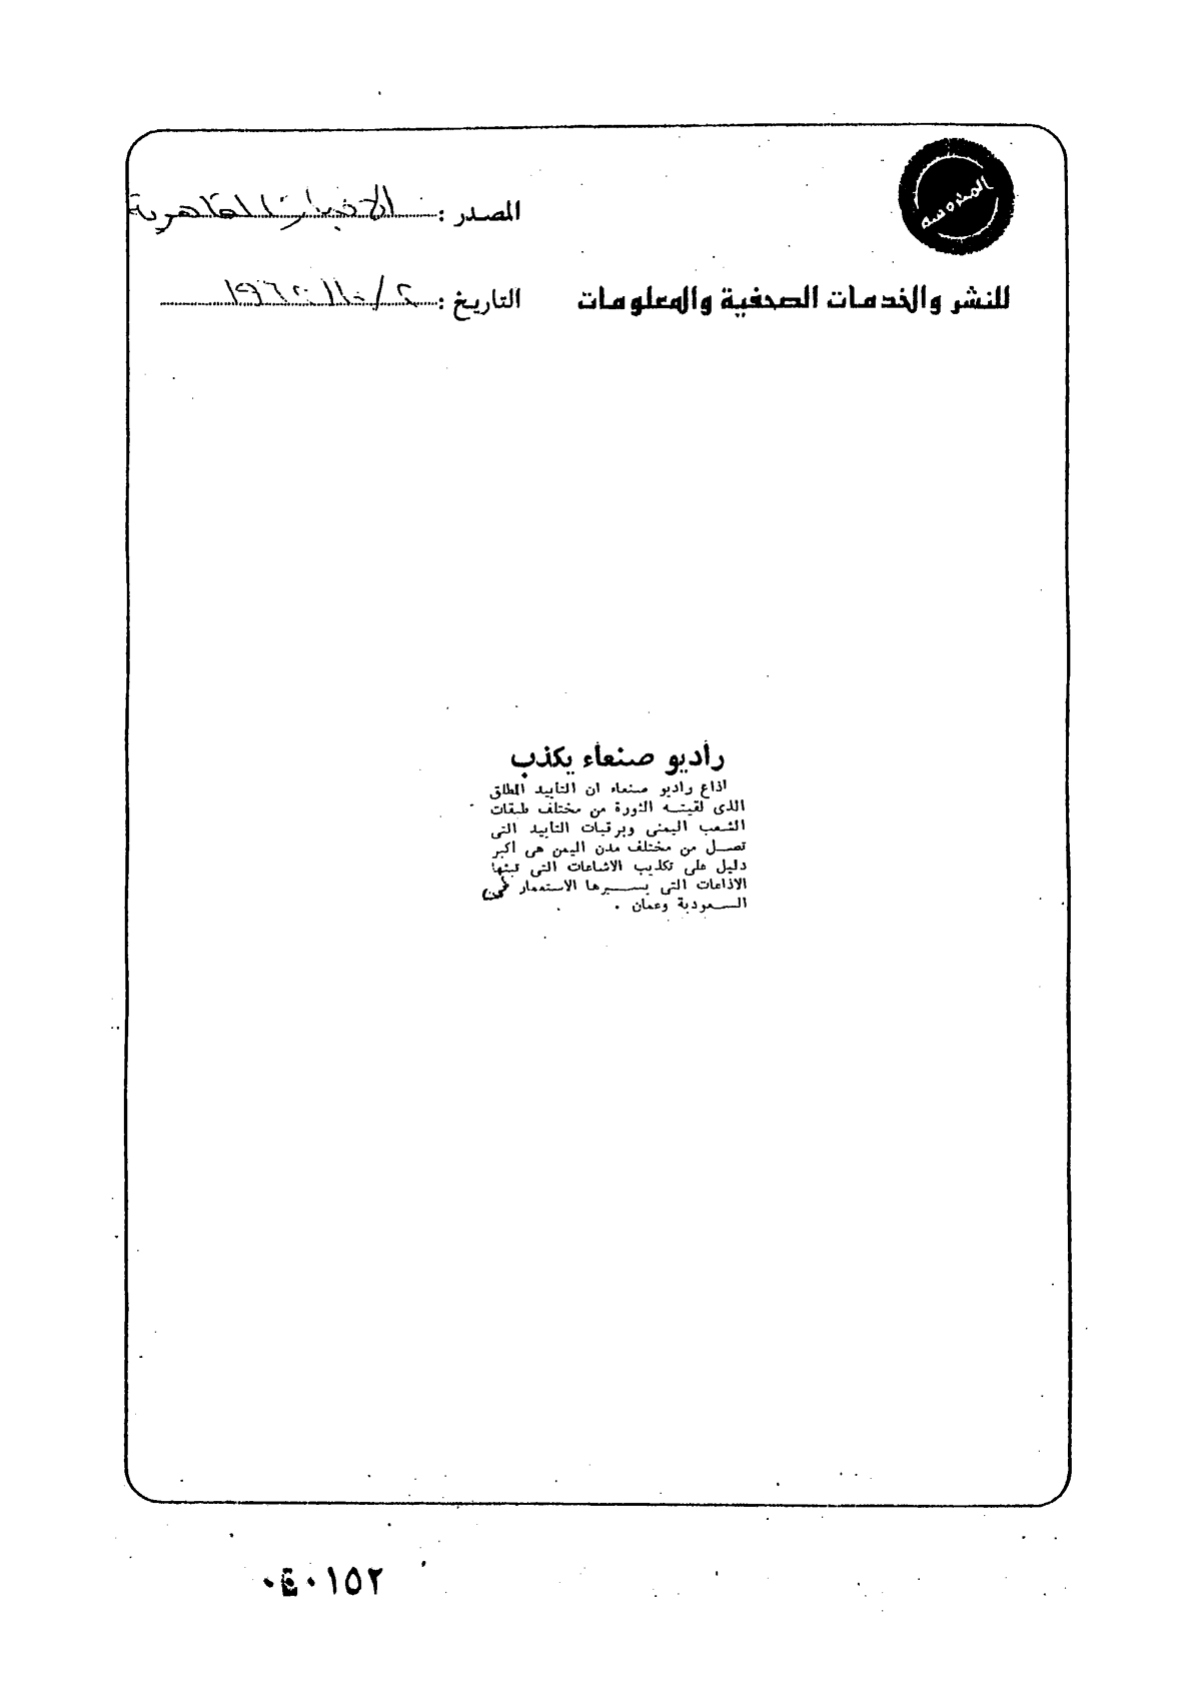 المحروسة
المصدر : الاخبار القاهرية
للنشر والخدمات الصحفية والمعلومات
التاريخ : ٢ / ١٠ / ١٩٦٢
راديو صنعاء يكذب
اذاع راديو صنعاء ان التأييد المطلق
الذى لقيته الثورة من مختلف طبقات
الشعب اليمنى وبرقيات التأييد التى
تصل من مختلف مدن اليمن هى أكبر
دليل على تكذيب الاشاعات التى تبثها
الاذاعات التى يسيرها الاستعمار فى
السعودية وعمان .
٠٤٠١٥٢